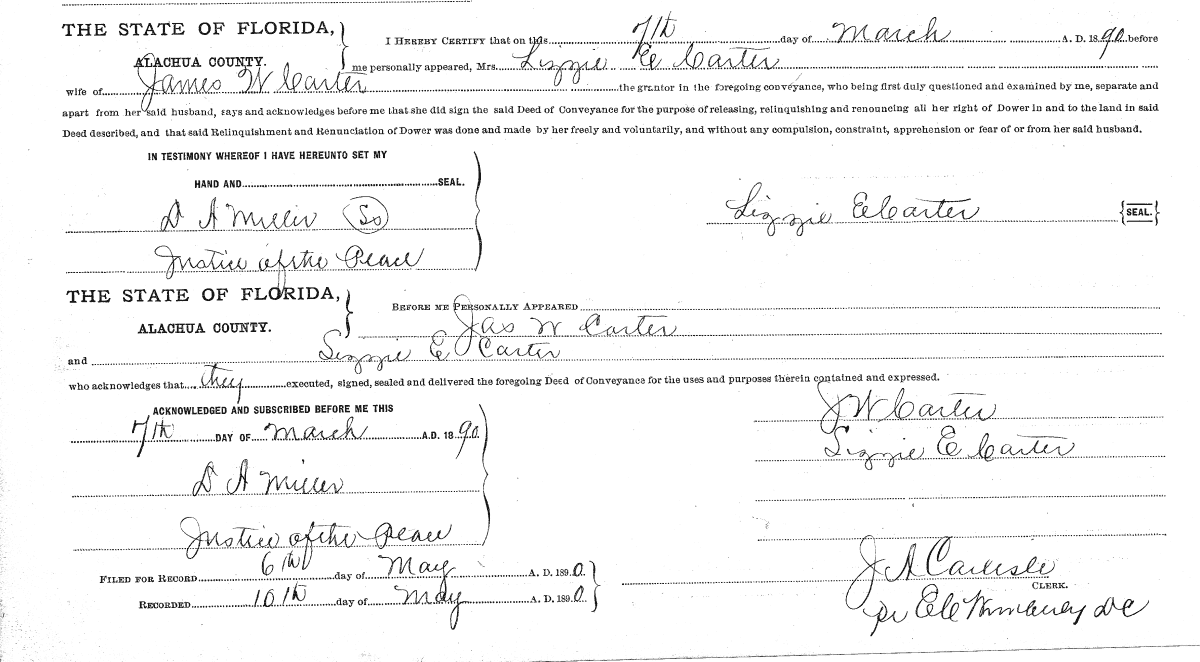 THE STATE OF FLORIDA,
ALACHUA COUNTY.
I HEREBY CERTIFY that on this 7th day of March A. D. 1890 before
me personally appeared, Mrs. Lizzie E Carter
wife of James W Carter the grantor in the foregoing conveyance, who being first duly questioned and examined by me, separate and
apart from her said husband, says and acknowledges before me that she did sign the said Deed of Conveyance for the purpose of releasing, relinquishing and renouncing all her right of Dower in and to the land in said
Deed described, and that said Relinquishment and Renunciation of Dower was done and made by her freely and voluntarily, and without any compulsion, constraint, apprehension or fear of or from her said husband.
IN TESTIMONY WHEREOF I HAVE HEREUNTO SET MY
HAND AND SEAL.
D A Miller
Justice of the Peace
Lizzie E Carter {SEAL.}
THE STATE OF FLORIDA,
ALACHUA COUNTY.
BEFORE ME PERSONALLY APPEARED
Jas W Carter
and Lizzie E Carter
who acknowledges that they executed, signed, sealed and delivered the foregoing Deed of Conveyance for the uses and purposes therein contained and expressed.
ACKNOWLEDGED AND SUBSCRIBED BEFORE ME THIS
7th DAY OF March A.D. 1890
D A Miller
Justice of the Peace
J W Carter
Lizzie E Carter
FILED FOR RECORD 6th day of May A. D. 1890
RECORDED 10th day of May A. D. 1890
J A Carlisle
CLERK.
DC